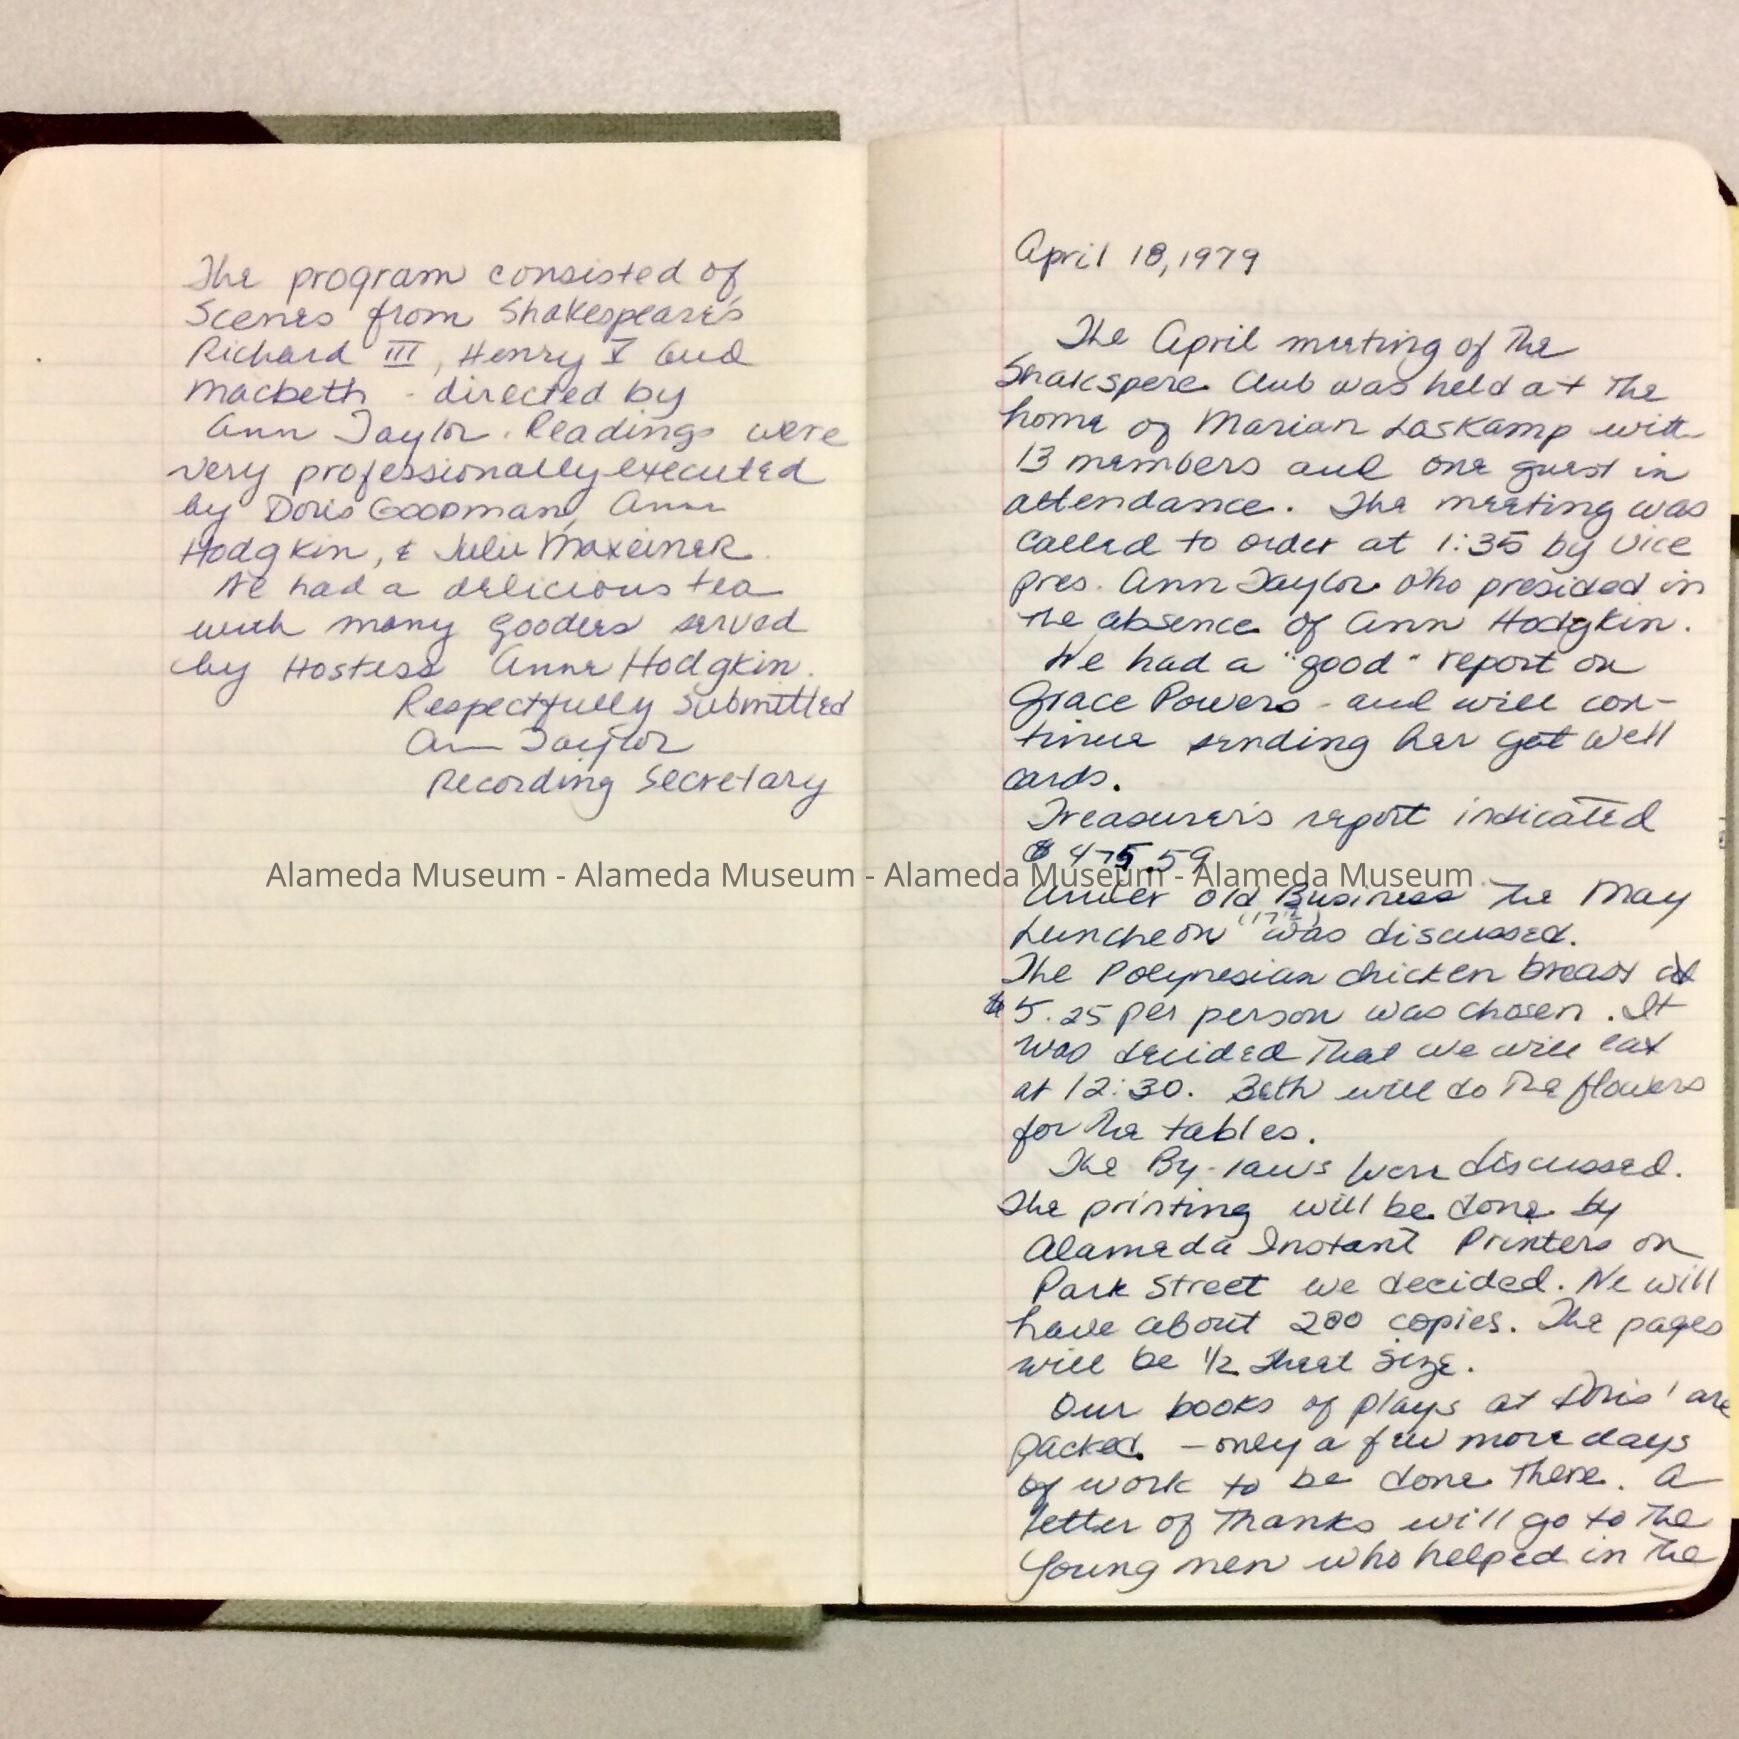 The program consisted of
Scenes from Shakespeare's
Richard III, Henry V and
Macbeth - directed by
Ann Taylor. Readings were
very professionally executed
by Doris Goodman, Ann
Hodgkin, & Julie Maxeiner.
We had a delicious tea
with many gooders served
by Hostess Anne Hodgkin.
Respectfully Submitted
Ann Taylor
Recording Secretary
April 18, 1979
The April meeting of the
Shakspere Club was held at the
home of Marian Laskamp with
13 members and one guest in
attendance. The meeting was
called to order at 1:35 by Vice
pres. Ann Taylor who presided in
the absence of Ann Hodgkin.
We had a "good" report on
Grace Powers - and will con-
tinue sending her get well
cards.
Treasurer's report indicated
$475.59
Alameda Museum - Alameda Museum - Alameda Museum - Alameda Museum
Under Old Business the May
Luncheon (17th) was discussed.
The Polynesian chicken breast at
$5.25 per person was chosen. It
was decided that we will eat
at 12:30. Beth will do the flowers
for the tables.
The By-laws were discussed.
The printing will be done by
Alameda Instant Printers on
Park Street we decided. We will
have about 200 copies. The pages
will be 1/2 sheet size.
Our books of plays at Doris' are
packed - only a few more days
of work to be done there. A
letter of thanks will go to the
young men who helped in the